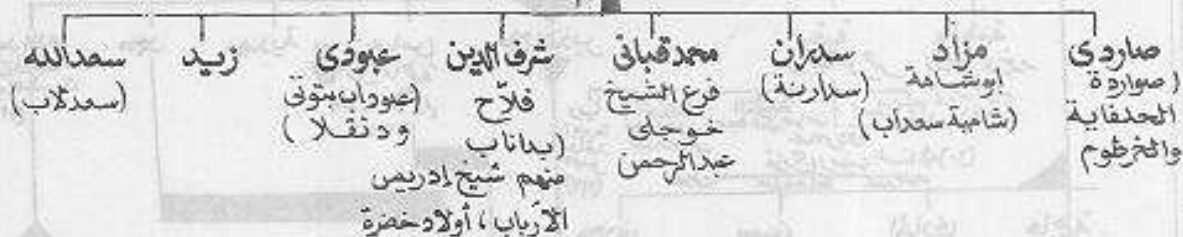 صاردى
(صواردة
الحلفاية
والخرطوم
مزاد
ابوشامة
(شامية سعداب)
سدران
(سدارنة)
محمد قبانى
فرع الشيخ
خوجلى
عبدالرحمن
شرف الدين
فلاّح
(بداناب
منهم شيخ إدريس
الأرباب ، أولاد خضرة
عبودى
(عبوداب متوتى
ودنقلا)
زيد
سعدالله
(سعدلاب)